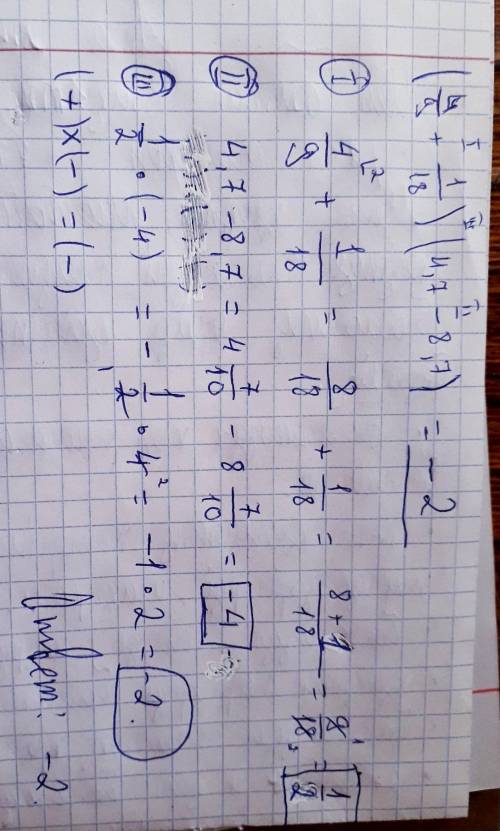 (4/9 + 1/18)(4,7 - 8,7) = -2
I III II
I 4/9 + 1/18 = 8/18 + 1/18 = 8+1/18 = 9/18 = 1/2
II 4,7 - 8,7 = 4 7/10 - 8 7/10 = -4
III 1/2 • (-4) = - 1/2 • 4 = -1 • 2 = -2.
(+)x(-) = (-)
Ответ: -2.